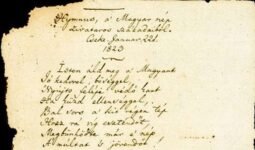 Hymnus, a' Magyar nép
zivataros századaiból.
Cseke, Januar. 22d.
1823
Isten áldd meg a' Magyart
Jó kedvvel, bőséggel,
Nyújts feléje védő kart
Ha küzd ellenséggel,
Bal sors a' kit régen tép
Hozz rá víg esztendőt
Megbűnhődte már e' nép
A' multat 's jövendőt!